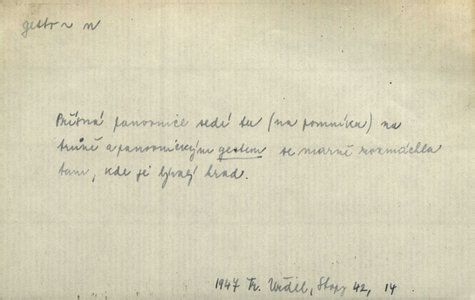 gesto n
Přísná panovnice sedí tu (na pomníku) na
trůně a panovnickým gestem se marně rozmáchla
tam, kde je bývalý hrad.
1947 Fr. Stopy 42, 14